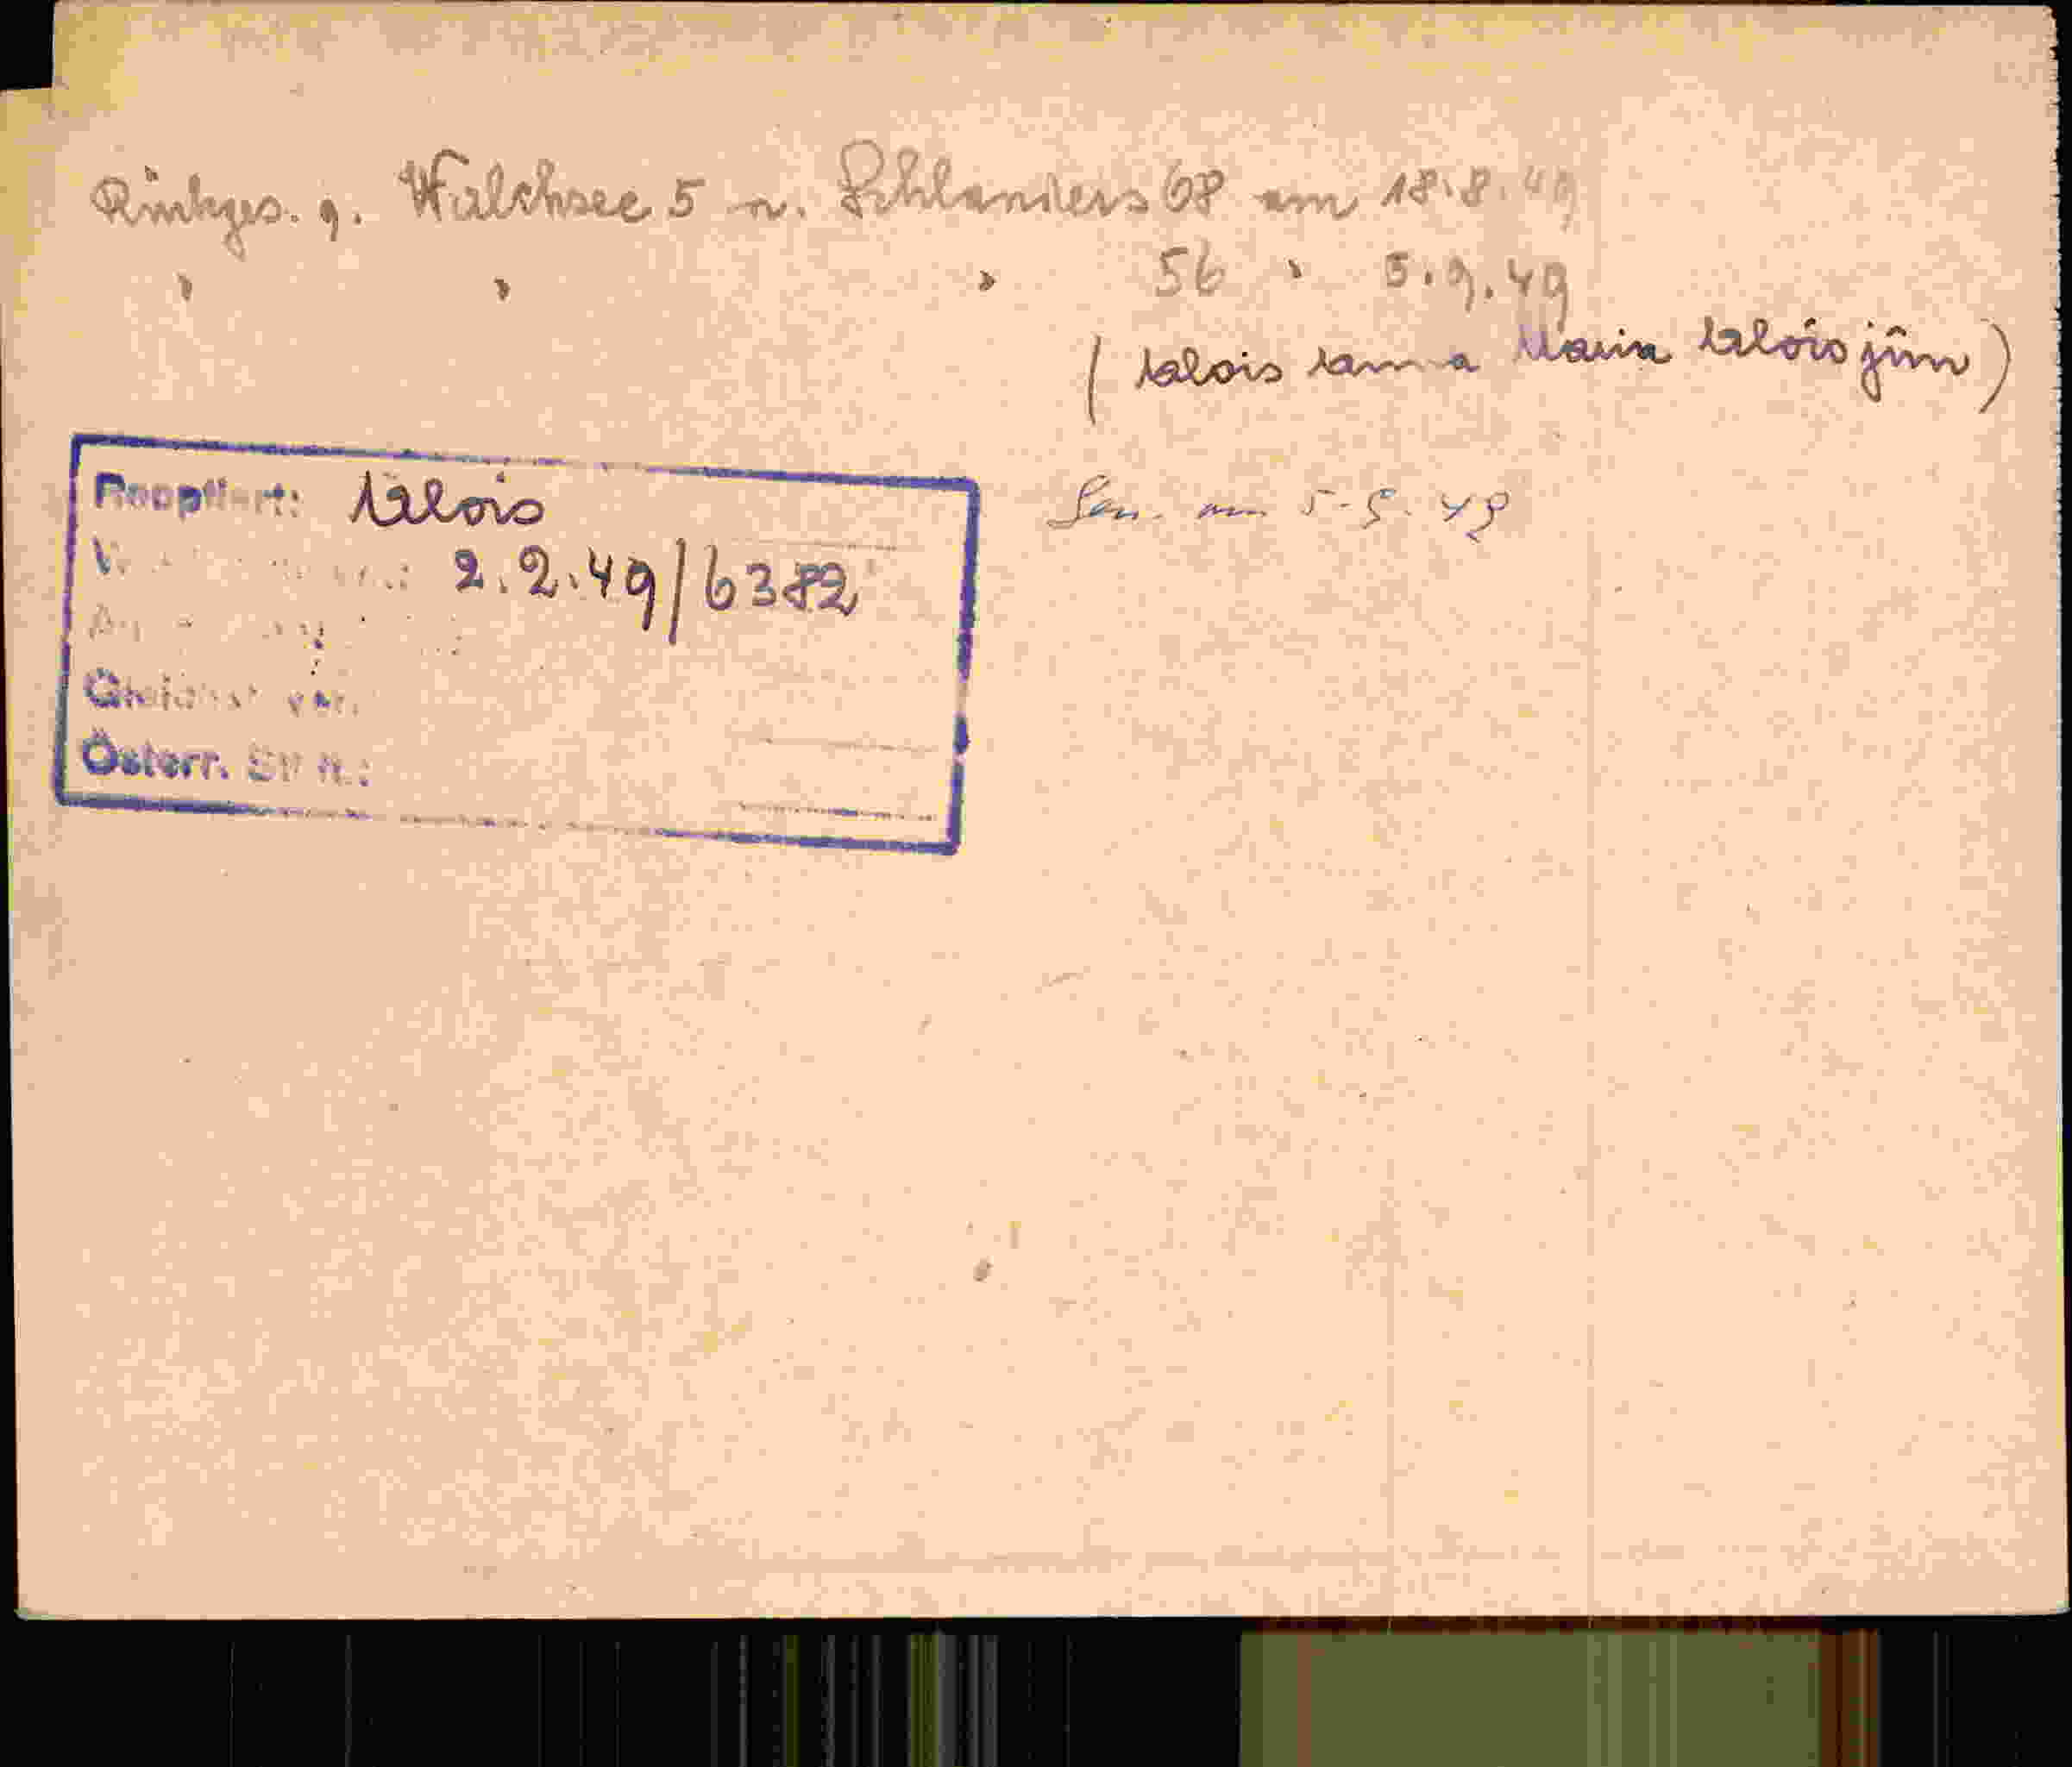 Rückges. g. Walchsee 5 n. Schlanders 68 am 18.8.49
" " " 56 " 5.9.49
( Alois Anna Maria Alois jun )
Reoptiert: Alois
am 5.9.49
2.2.49/6382
Österr.